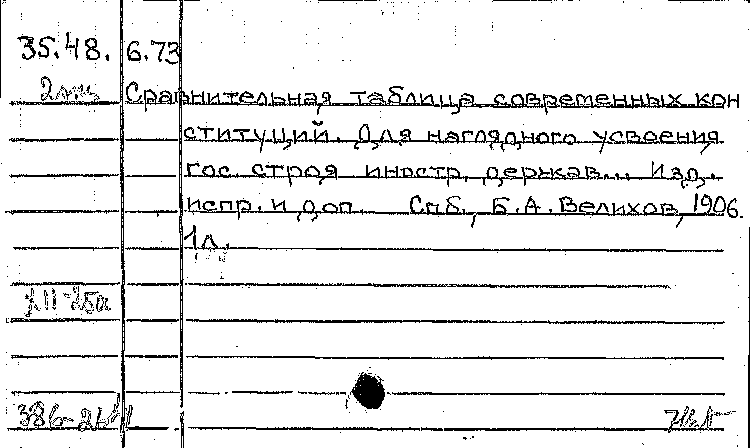 35.48. 6.73
2 экз Сравнительная таблица современных кон
ституций. Для наглядного усвоения
гос. строя иностр. держав... Изд.
испр. и доп. Спб., Б.А. Велихов, 1906.
1л.